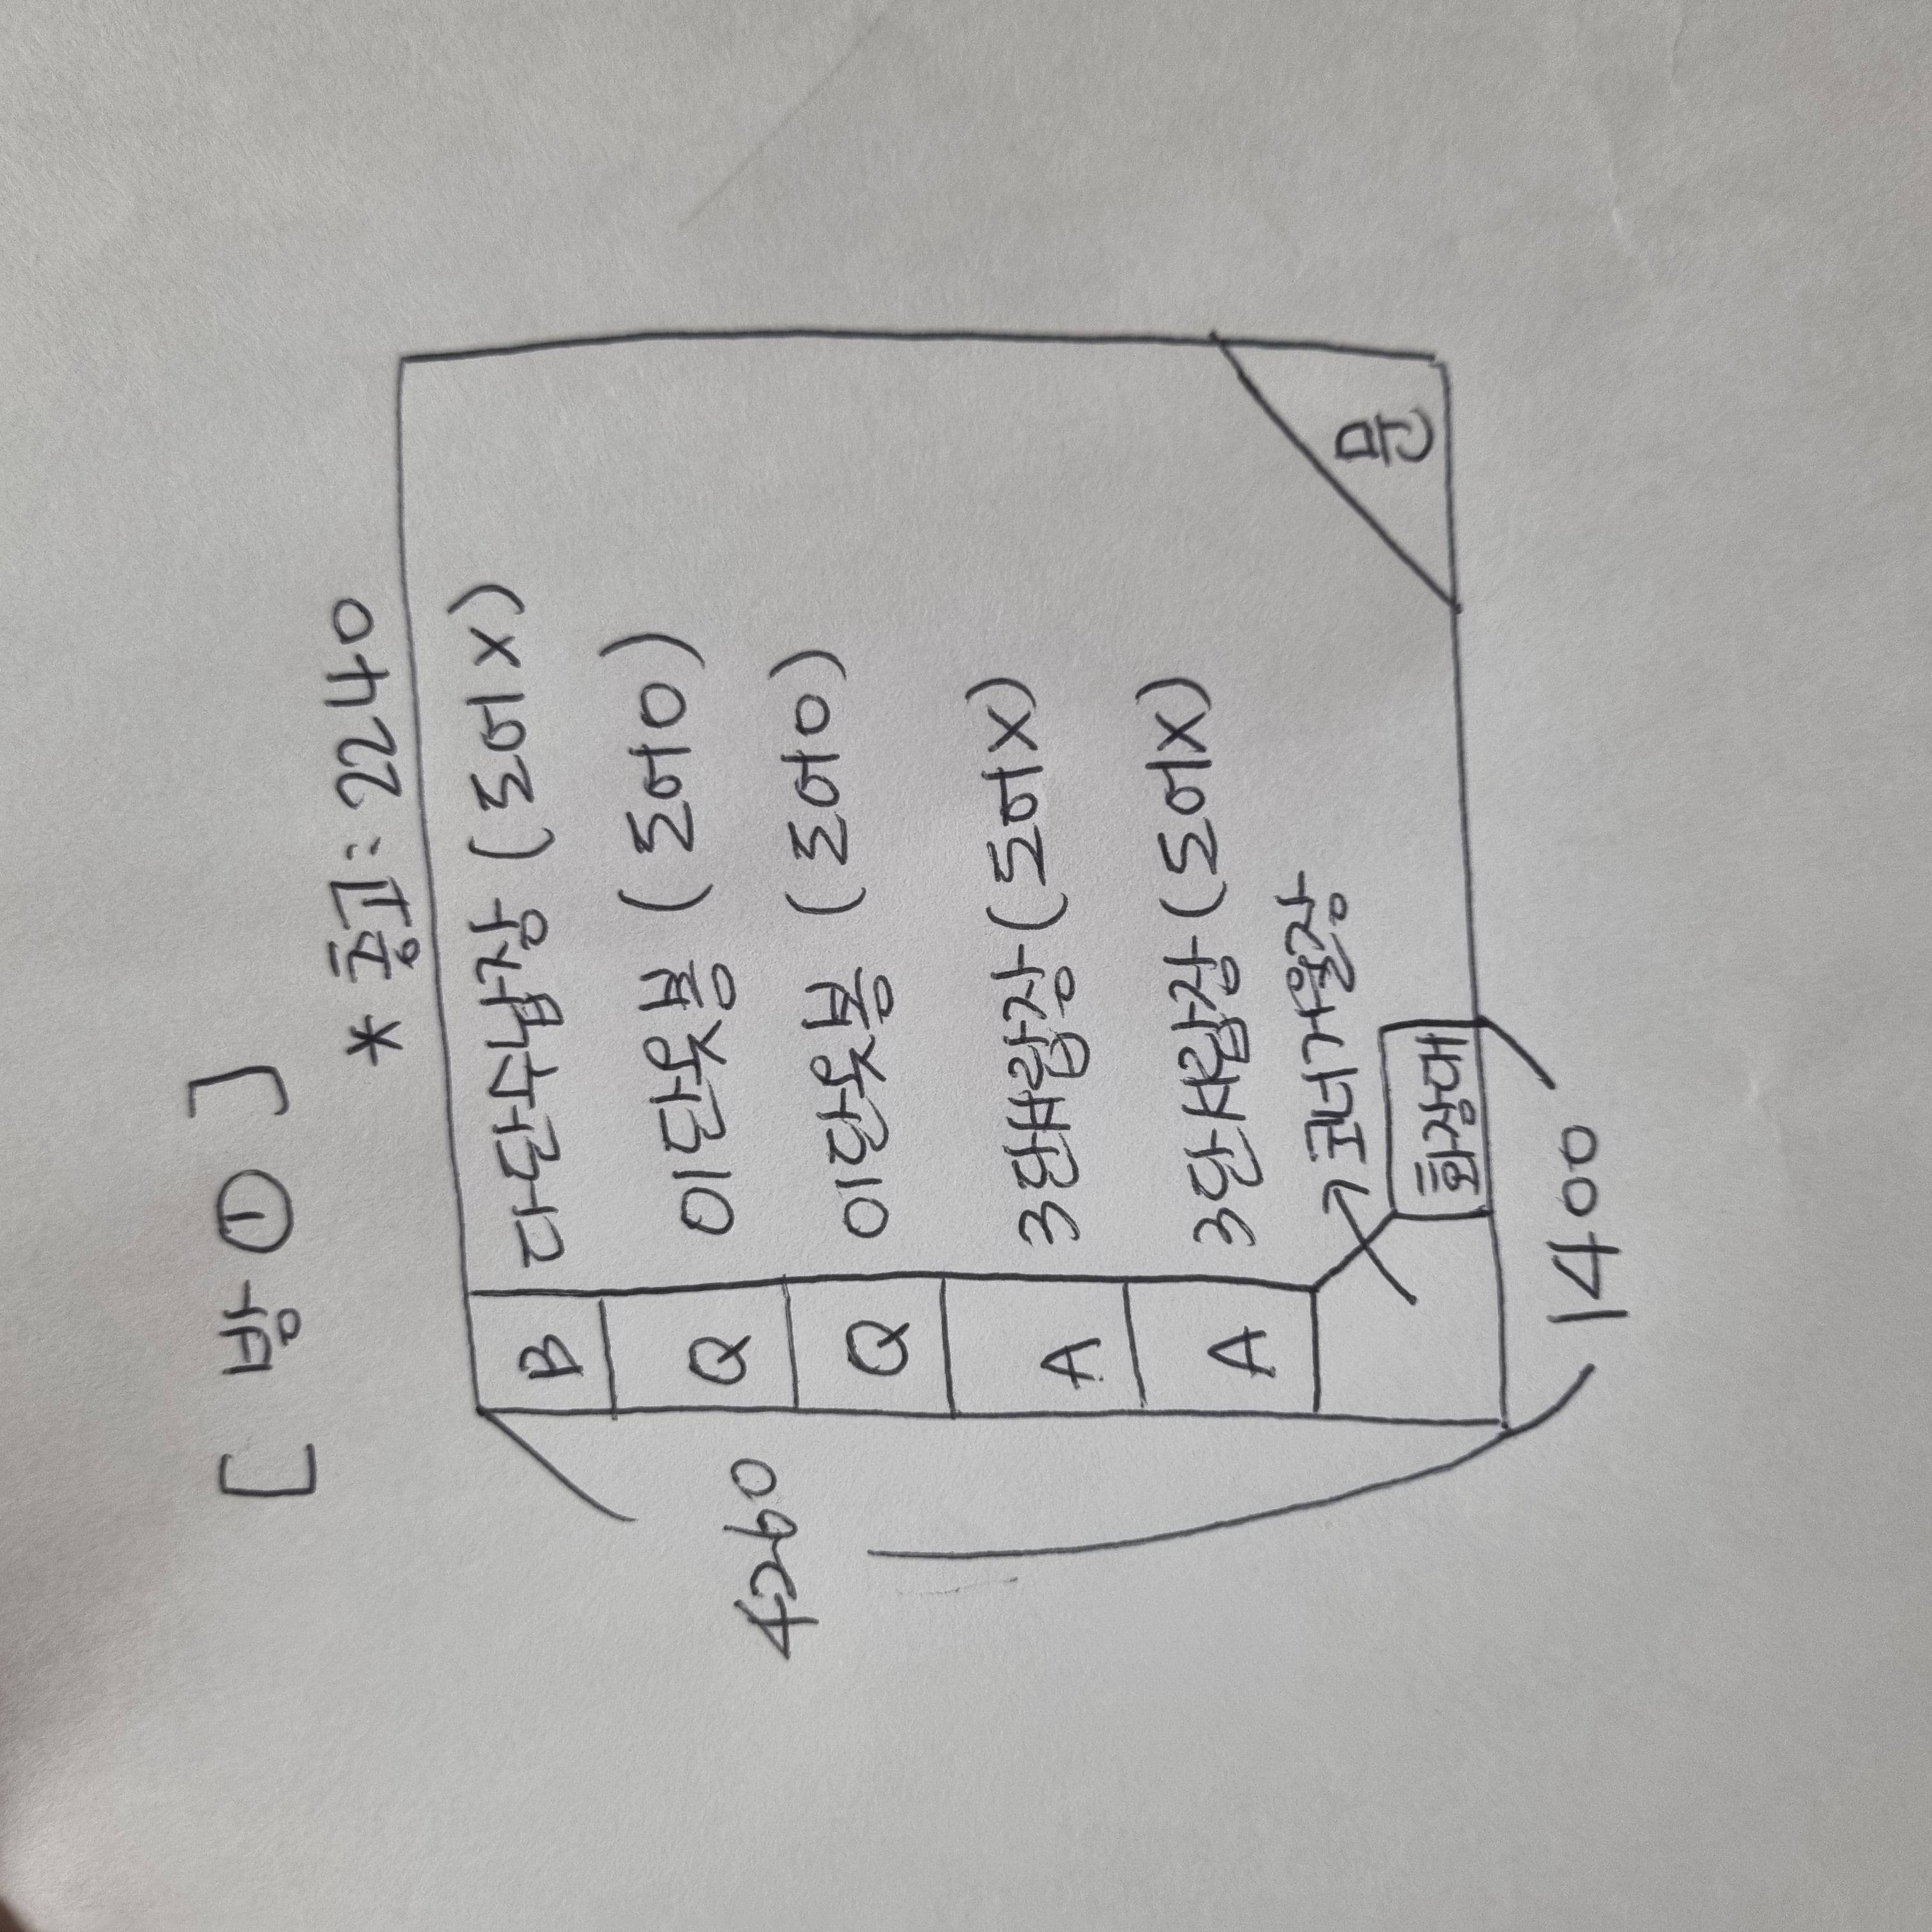 [ 방 ① ]
* 층고: 2240
B 다단수납장 (도어X)
Q 이단옷봉 (도어O)
Q 이단옷봉 (도어O)
A 3단서랍장 (도어X)
A 3단서랍장 (도어X)
코너거울장
화장대
문
4260
1400